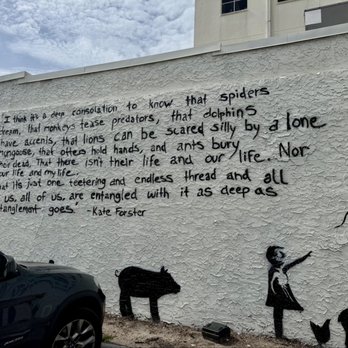 I think it's a deep consolation to know that spiders
dream, that monkeys tease predators, that dolphins
have accents, that lions can be scared silly by a lone
mongoose, that otters hold hands, and ants bury
their dead. That there isn't their life and our life. Nor
your life and my life.
That it's just one teetering and endless thread and all
of us, all of us, are entangled with it as deep as
entanglement goes. -Kate Forster